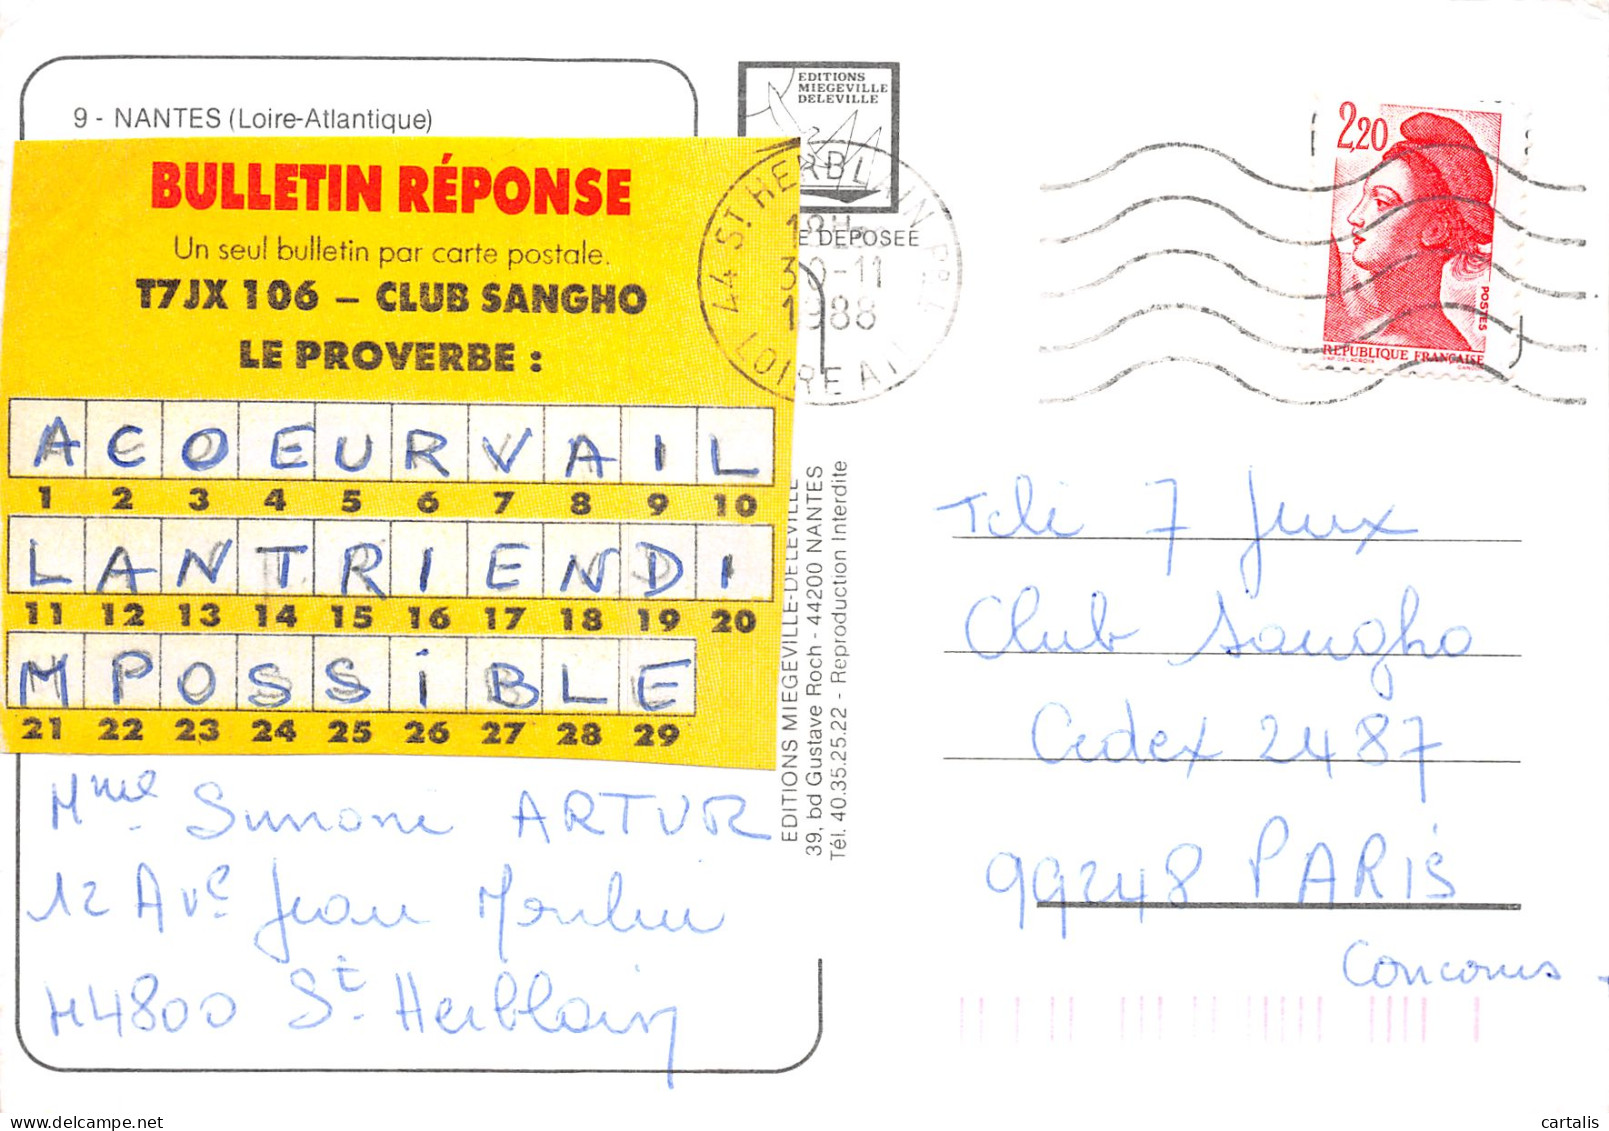 9 - NANTES (Loire-Atlantique)
BULLETIN RÉPONSE
Un seul bulletin par carte postale.
T7JX 106 – CLUB SANGHO
LE PROVERBE :
A C O E U R V A I L
1 2 3 4 5 6 7 8 9 10
L A N T R I E N D I
11 12 13 14 15 16 17 18 19 20
M P O S S i B L E
21 22 23 24 25 26 27 28 29
Mme Simone ARTUR
12 Ave Jean Moulin
44800 St Herblain
EDITIONS
MIEGEVILLE
DELEVILLE
E DEPOSEE
44 ST HERBLAIN
18H
30-11
1988
EDITIONS MIEGEVILLE-DELEVILLE
39, bd Gustave Roch - 44200 NANTES
Tél. 40.35.25.22 - Reproduction Interdite
2,20
POSTES
REPUBLIQUE FRANÇAISE
Télé 7 Jeux
Club Sangho
Cedex 2487
99248 PARIS
Concours
delcampe.net
cartalis